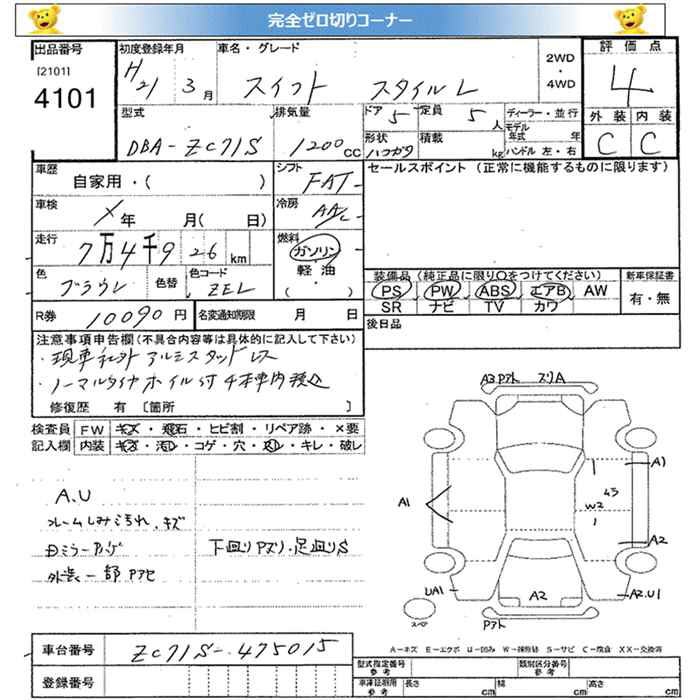 完全ゼロ切りコーナー
出品番号 初度登録年月 車名・グレード 2WD・4WD 評価点
[2101]
4101
H21 3月 スイフト スタイルL 4
型式 排気量 ドア 5 定員 5人 ディーラー・並行 外装 内装
DBA-ZC71S 1200cc 形状 ハコガタ 積載 kg モデル年式 年 ハンドル 左・右 C C
車歴 自家用・( ) シフト FAT セールスポイント (正常に機能するものに限ります)
車検 ×年 月( 日) 冷房 AAC
走行 7万4千926km 燃料 ガソリン・軽油・( )
色 色替 色コード ZEL
装備品(純正品に限り○をつけてください) 新車保証書
PS PW ABS エアB AW 有・無
SR ナビ TV カワ
R券 10090円 名変通知期限 月 日 後日品
注意事項申告欄(不具合内容等は具体的に記入して下さい)
・現車社外アルミスタッドレス
・ノーマルタイヤホイル付4本車内積込
修復歴 有 [箇所 ]
検査員 FW キズ・飛石・ヒビ割・リペア跡・×要
記入欄 内装 キズ・汚レ・コゲ・穴・スレ・キレ・破レ
A3 Pアト ズリA
A1
43
W2
A1
A2
UA1
A2
A2.U1
スペア
Pアト
A.U
フレームしみ汚れ.キズ
下回りPズリ.足回りS
外装一部PアセA
A-キズ E-エクボ U-凹み W-補修跡 S-サビ C-腐食 XX-交換済
車台番号 ZC71S-475015
登録番号
型式指定番号 参考 類別区分番号 参考
車庫証明用 参考 長さ cm 幅 cm 高さ cm